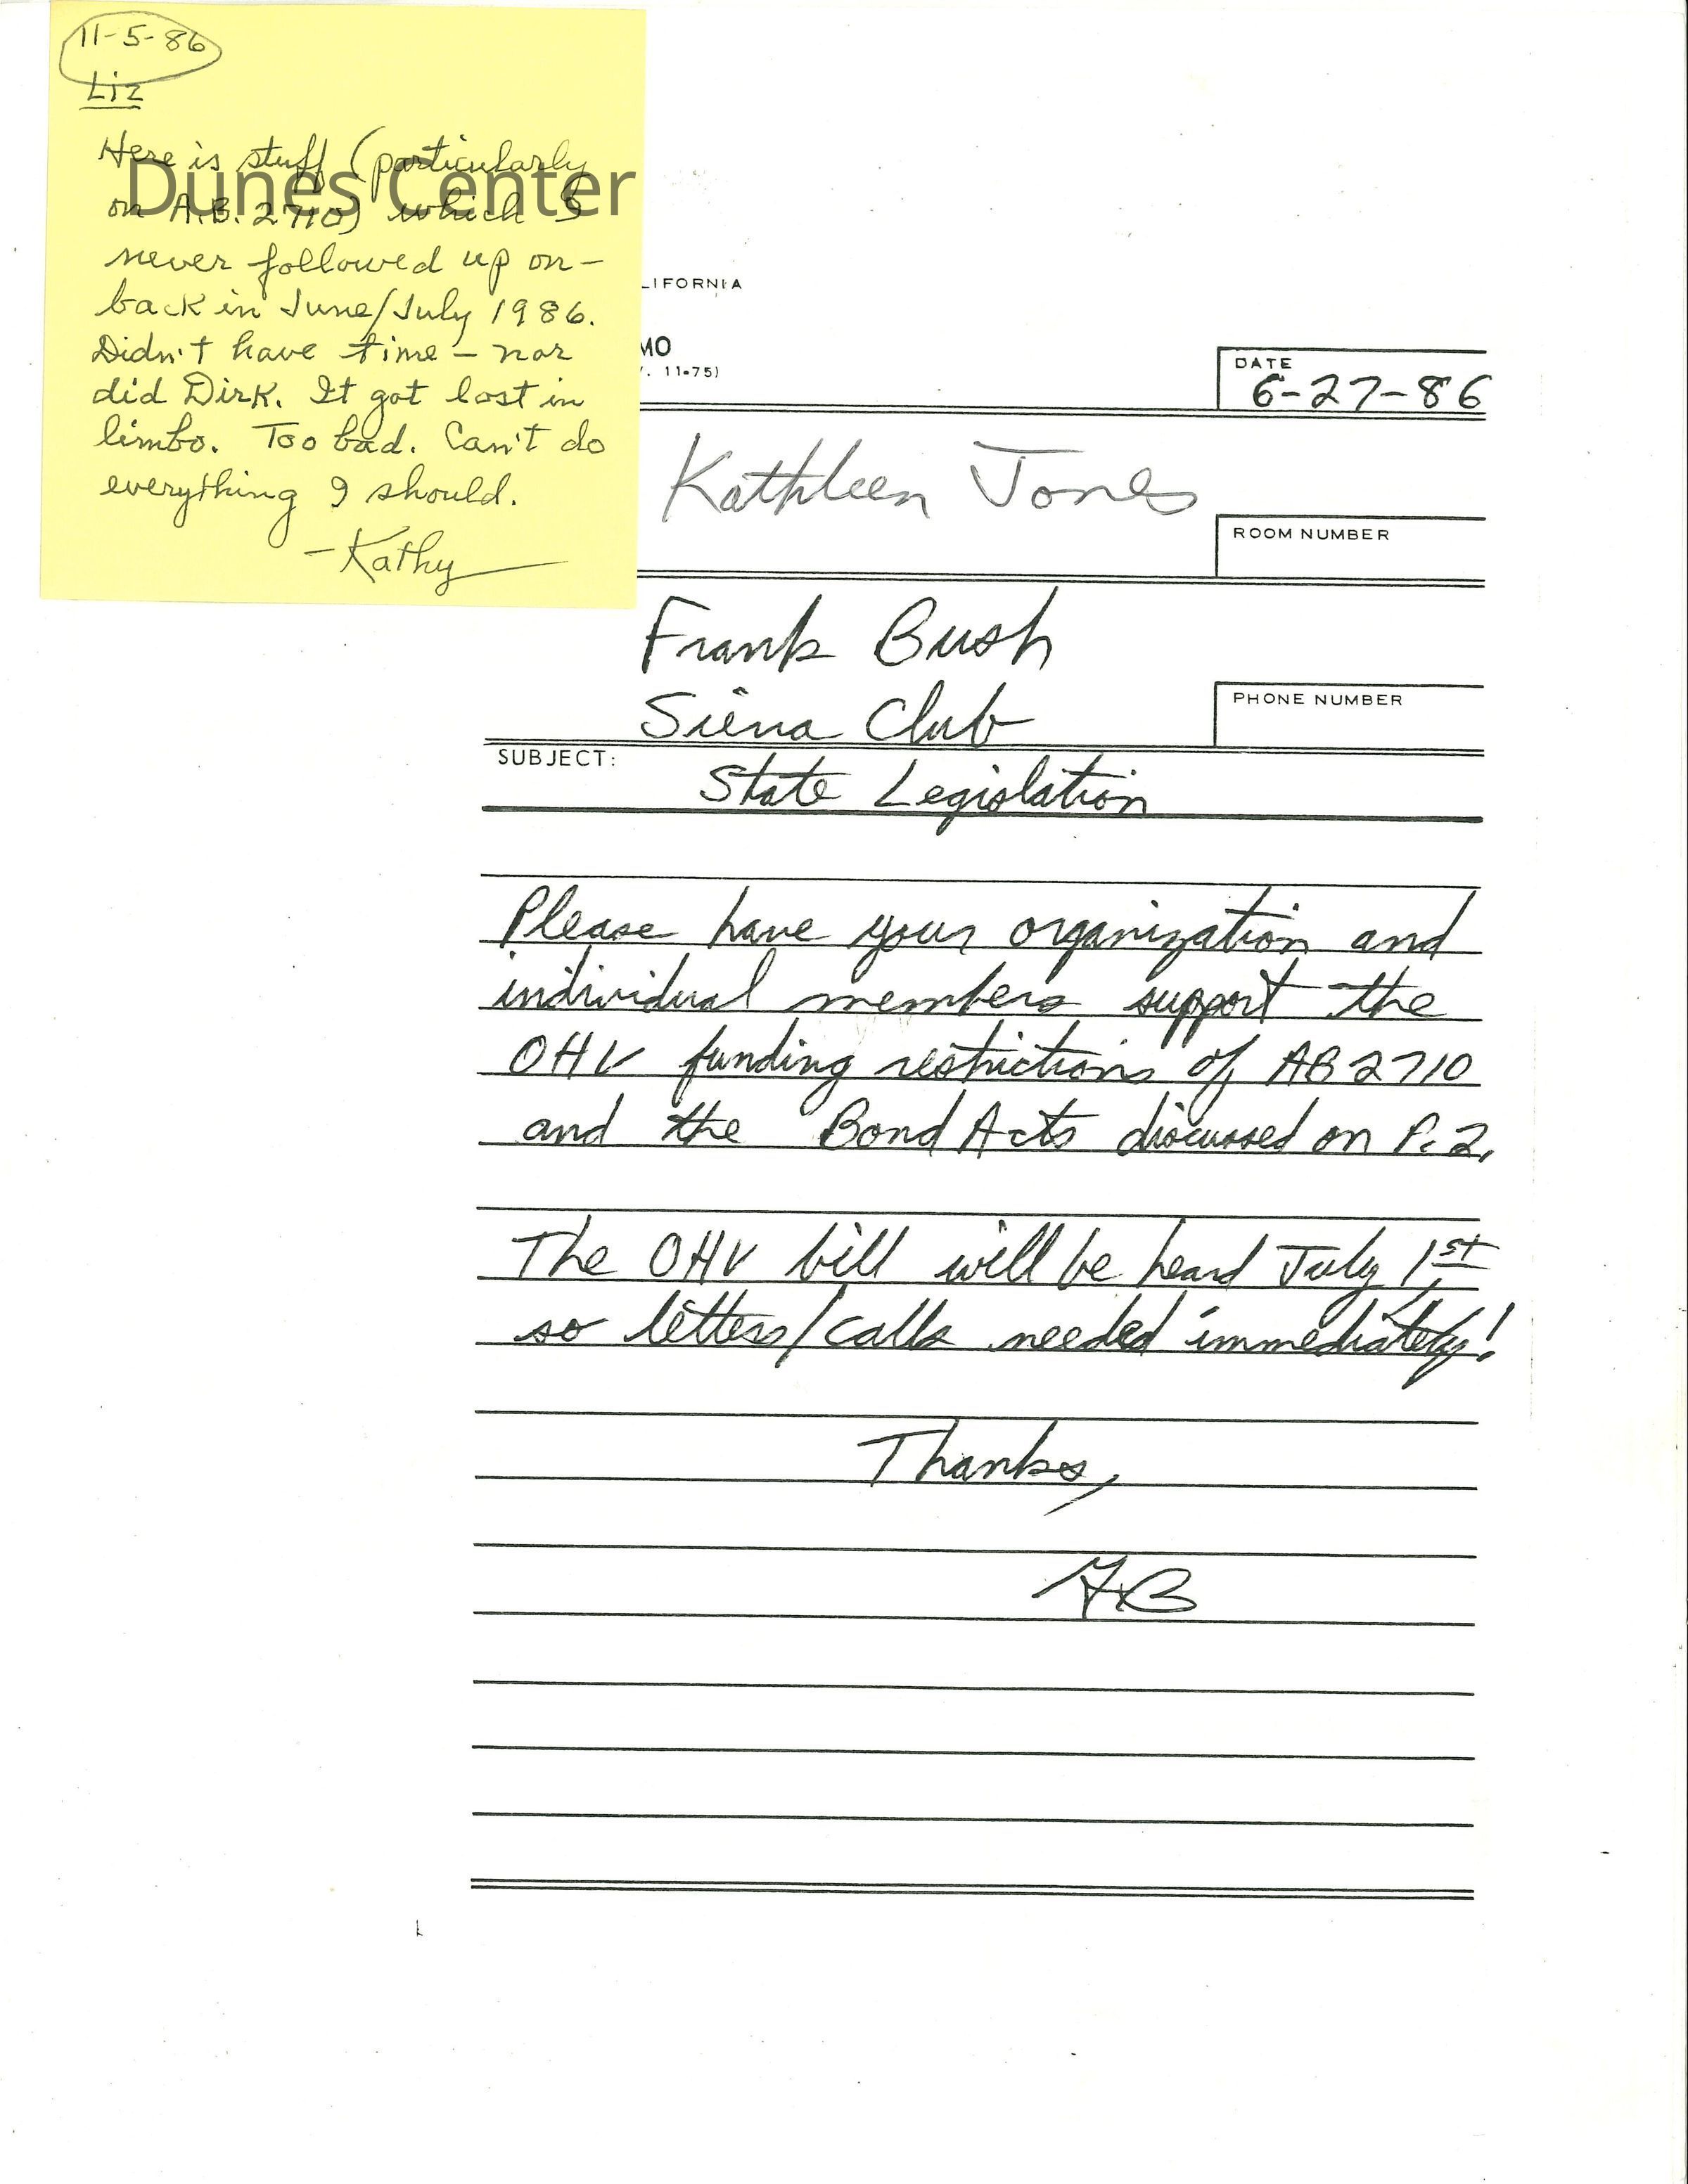 11-5-86
Liz
Here is stuff (particularly
on A.B. 2710) which I
never followed up on-
back in June/July 1986.
Didn't have time - nor
did Dirk. It got lost in
limbo. Too bad. Can't do
everything I should.
-Kathy
Dunes Center
LIFORNIA
MO
. 11-75)
DATE
6-27-86
Kathleen Jones
ROOM NUMBER
Frank Bush
Sierra Club
PHONE NUMBER
SUBJECT:
State Legislation
Please have your organization and
individual members support the
OHV funding restrictions of AB 2710
and the Bond Acts discussed on P. 2.
The OHV bill will be heard July 1st,
so letters/calls needed immediately!
Thanks,
FB